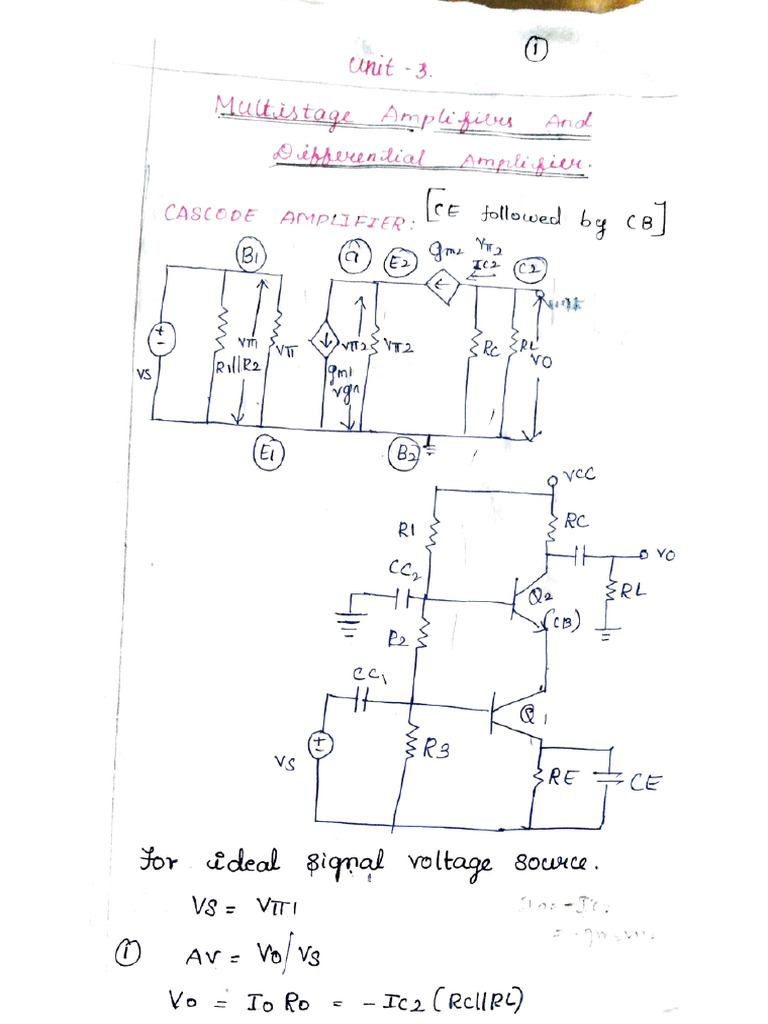 1
Unit - 3.
Multistage Amplifiers And
Differential Amplifier.
CASCODE AMPLIFIER: [CE followed by CB]
B1 C1 E2 gm2 Vπ2 IC2 C2
+ - VS R1||R2 Vπ1 Vπ gm1 Vπ2 Vπ2 RC RL VO
E1 B2
VCC
R1 RC
CC2 VO
Q2 RL
(CB)
R2
CC1
Q1
+ - VS R3
RE CE
For ideal signal voltage source.
VS = Vπ1
① AV = Vo/VS
Vo = Io Ro = -Ic2 (RC||RL)